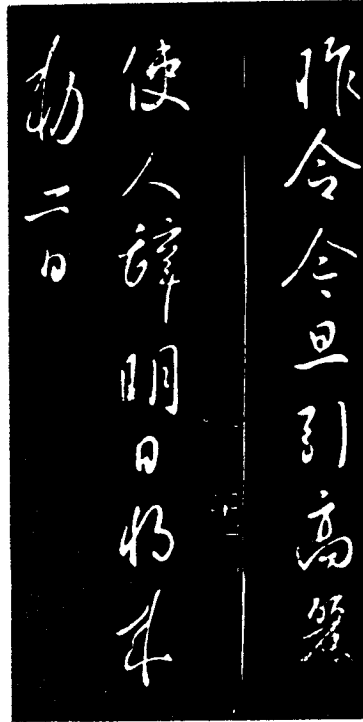 昨令今旦引高麗
使人辞明日将来
勅 二日